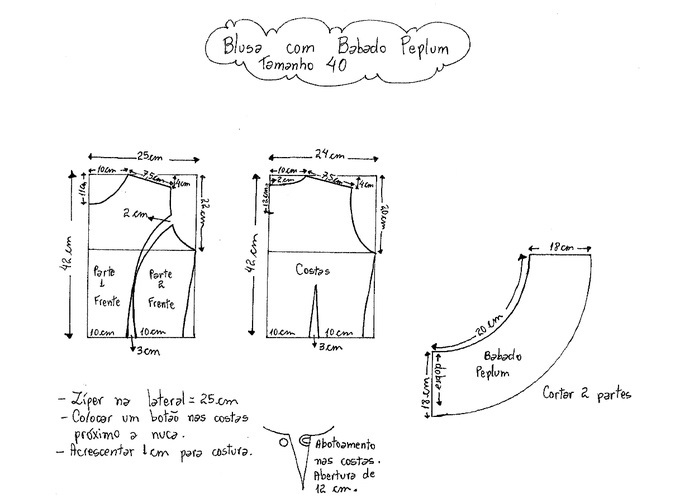 Blusa com Babado Peplum
Tamanho 40
25cm
10cm
7,5cm
4cm
11cm
22cm
2 cm
42 cm
Parte 1 Frente
Parte 2 Frente
10cm
10cm
3cm
24cm
10cm
2cm
7,5cm
4cm
12cm
20cm
42 cm
Costas
10cm
10cm
3cm
18cm
20 cm
18cm
dobra
Babado
Peplum
Cortar 2 partes
- Zíper na lateral = 25cm
- Colocar um botão nas costas
próximo a nuca.
- Acrescentar 1cm para costura.
Abotoamento
nas costas.
Abertura de
12 cm.